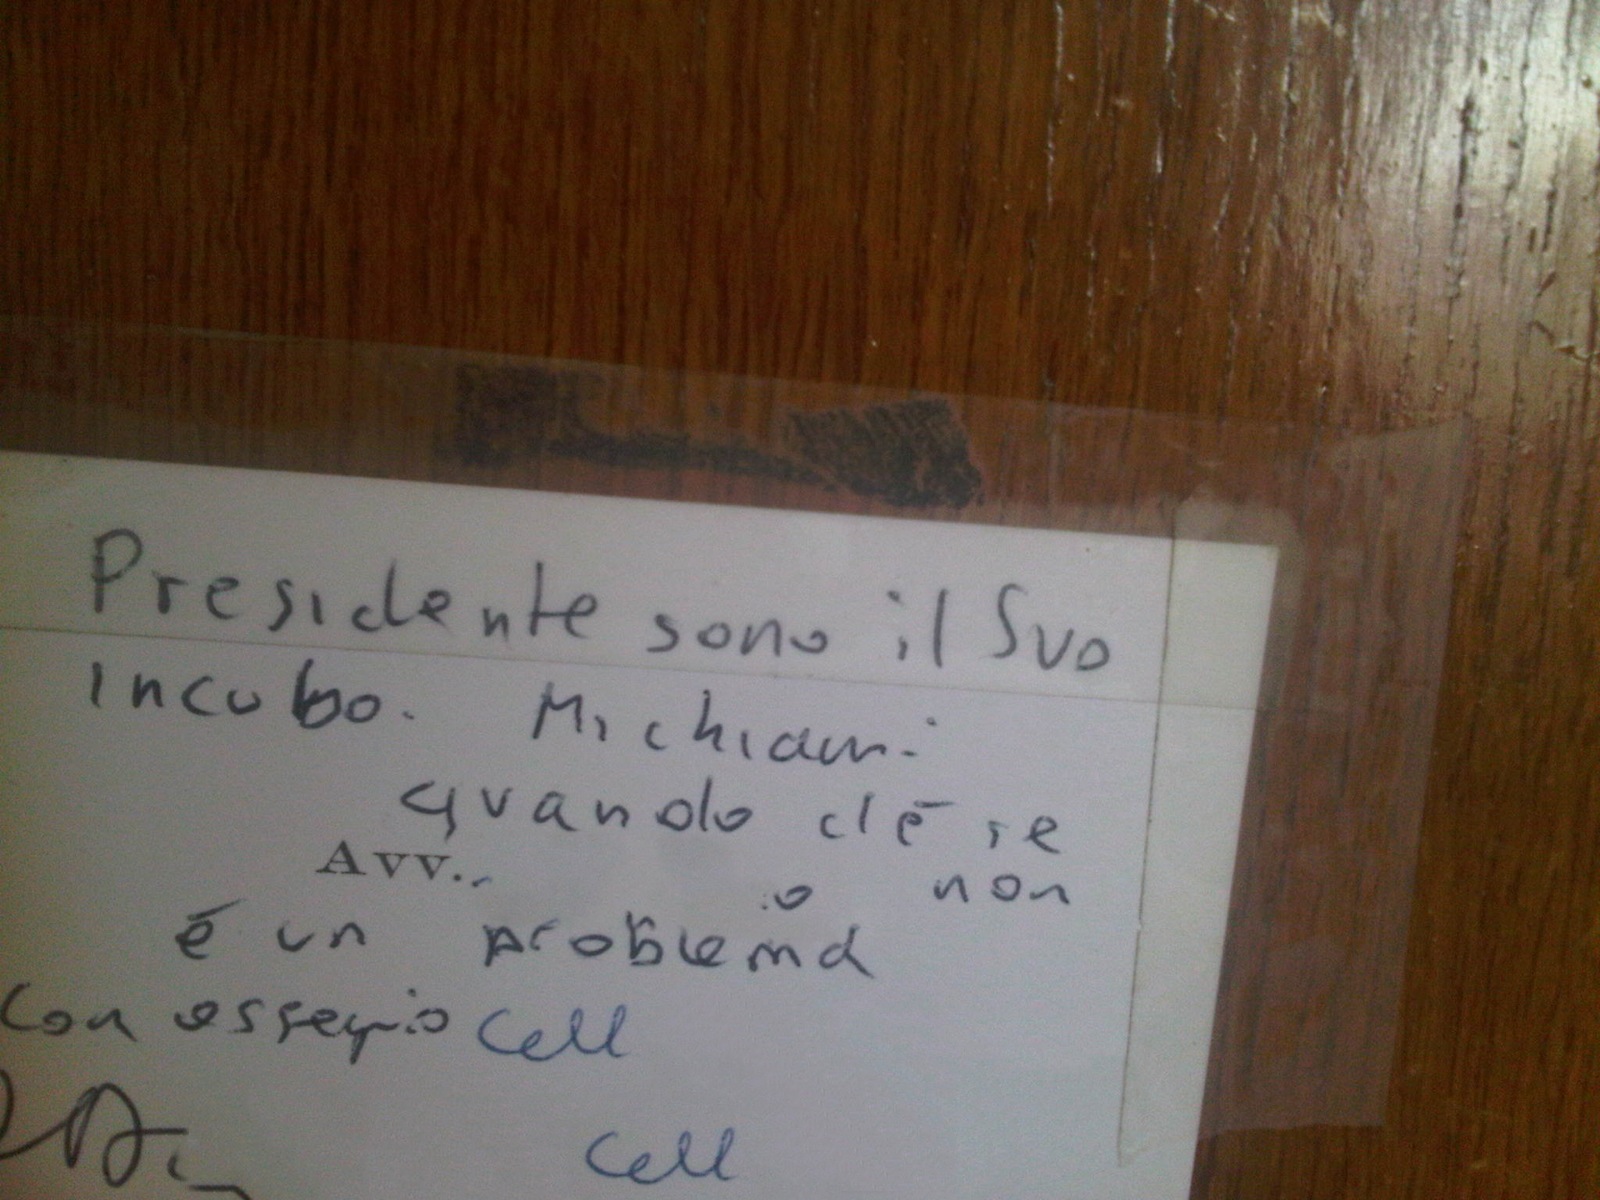 Presidente sono il Suo
incubo. Mi chiami
quando c'è se
Avv.. o non
è un problema
Con ossequio Cell
Cell